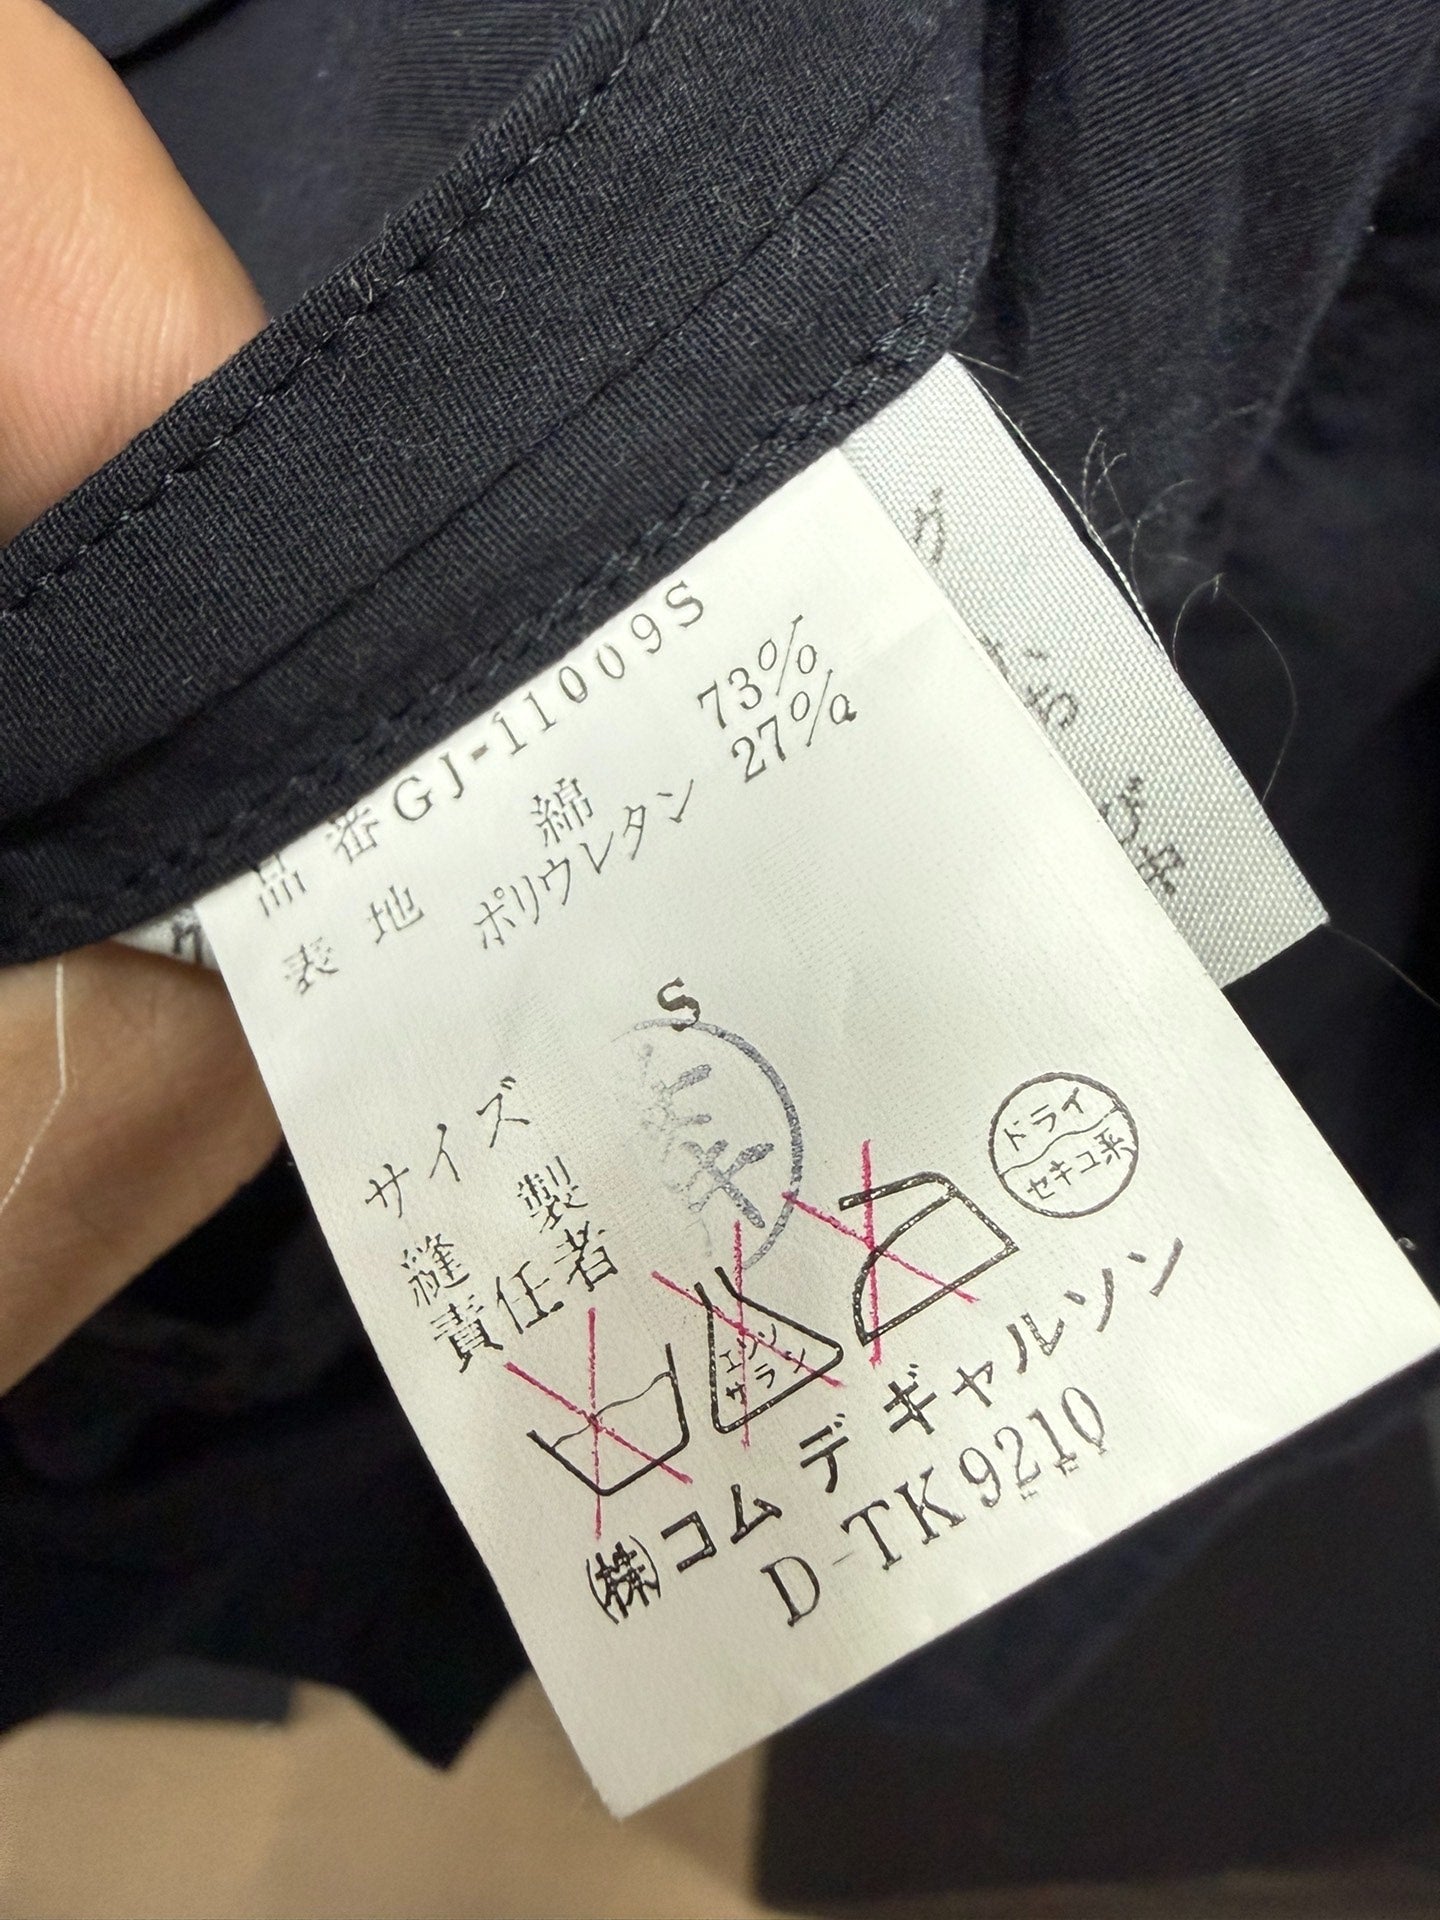 品番GJ-11009S
表地 綿 73%
ポリウレタン 27%
サイズ S
縫製
責任者
エンソ
サラシ
ドライ
セキユ系
㈱コム デ ギャルソン
D-TK9210